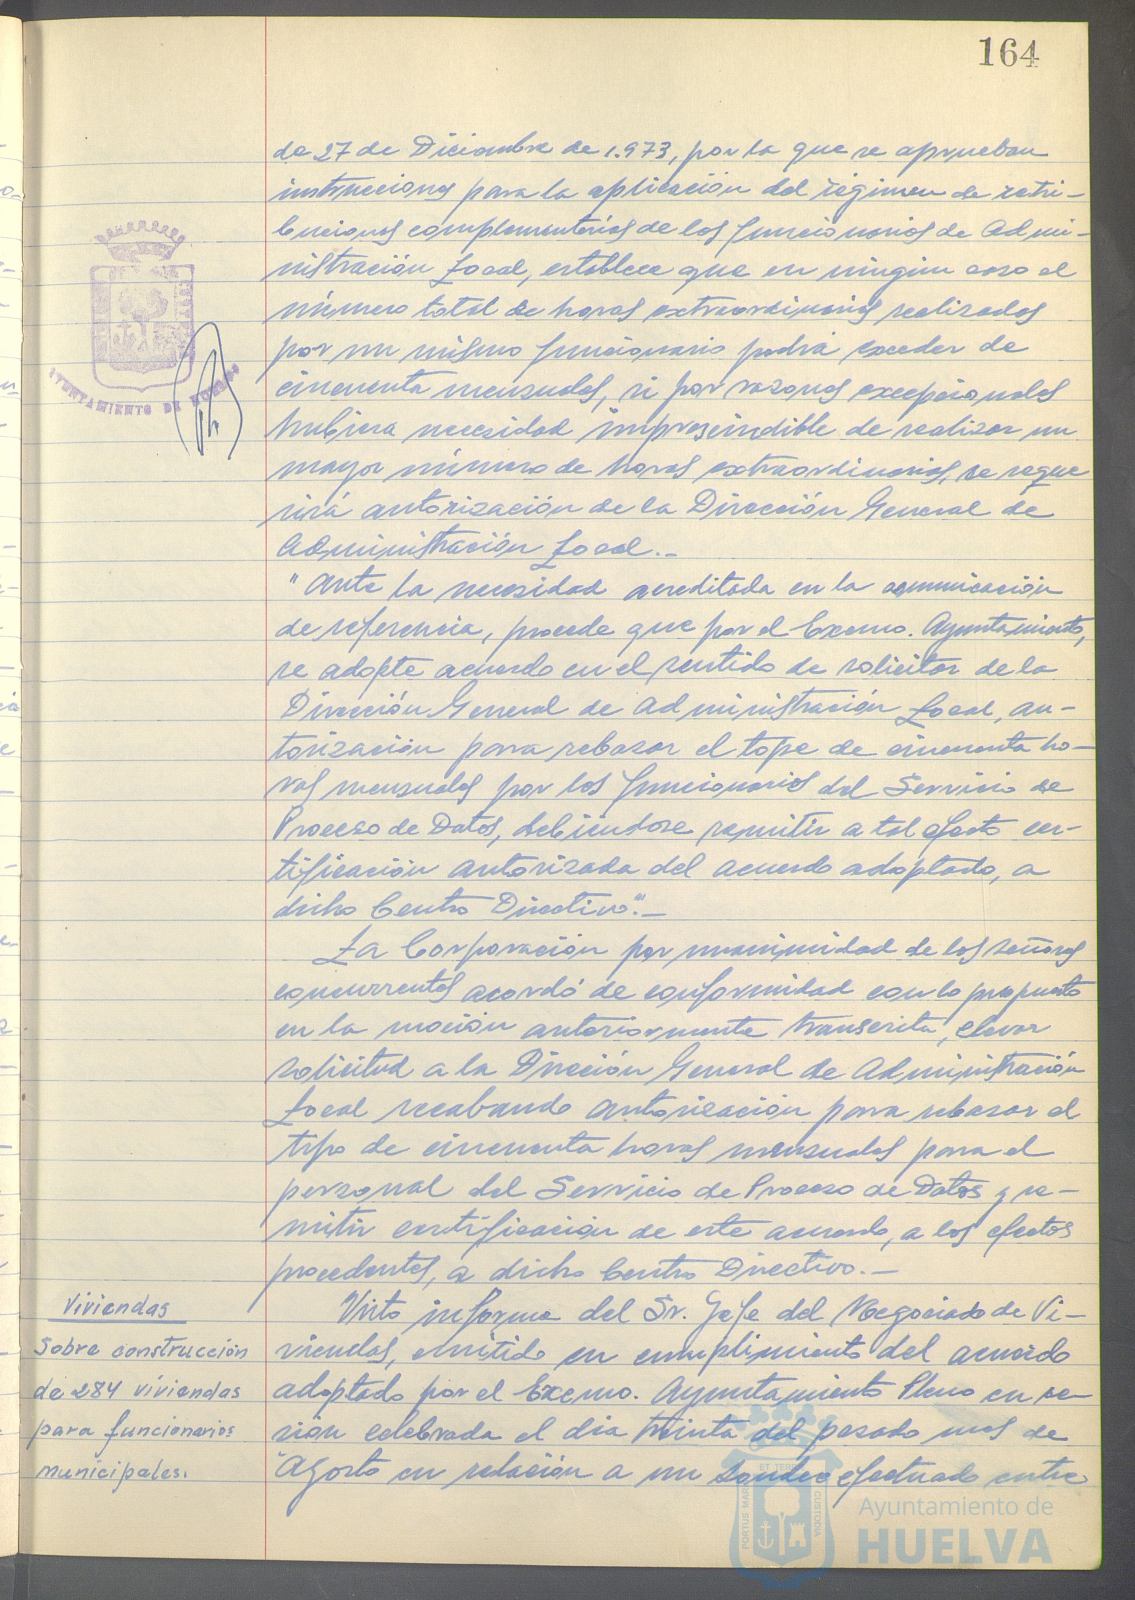 164
de 27 de Diciembre de 1.973, por la que se aprueban
instrucciones para la aplicación del régimen de retri-
buciones complementarias de los funcionarios de Admi-
nistración Local, establece que en ningún caso el
número total de horas extraordinarias realizadas
por un mismo funcionario podrá exceder de
cincuenta mensuales, si por razones excepcionales
hubiera necesidad imprescindible de realizar un
mayor número de horas extraordinarias, se reque
rirá autorización de la Dirección General de
Administración Local.-
"Ante la necesidad acreditada en la comunicación
de referencia, procede que por el Excmo. Ayuntamiento,
se adopte acuerdo en el sentido de solicitar de la
Dirección General de Administración Local, au-
torización para rebasar el tope de cincuenta ho-
ras mensuales por los funcionarios del Servicio de
Proceso de Datos, debiéndose remitir a tal efecto cer-
tificación autorizada del acuerdo adoptado, a
dicho Centro Directivo".-
La Corporación por unanimidad de los señores
concurrentes acordó de conformidad con lo propuesto
en la moción anteriormente transcrita, elevar
solicitud a la Dirección General de Administración
Local recabando autorización para rebasar el
tipo de cincuenta horas mensuales para el
personal del Servicio de Proceso de Datos y re-
mitir certificación de este acuerdo, a los efectos
procedentes, a dicho Centro Directivo.-
Viviendas
Sobre construcción
de 284 viviendas
para funcionarios
municipales.
Visto informe del Sr. Jefe del Negociado de Vi-
viendas, emitido en cumplimiento del acuerdo
adoptado por el Excmo. Ayuntamiento Pleno en se-
sión celebrada el día treinta del pasado mes de
Agosto en relación a un sondeo efectuado entre
AYUNTAMIENTO DE HUELVA
PORTUS MARIS ET TERRAE CUSTODIA
Ayuntamiento de
HUELVA